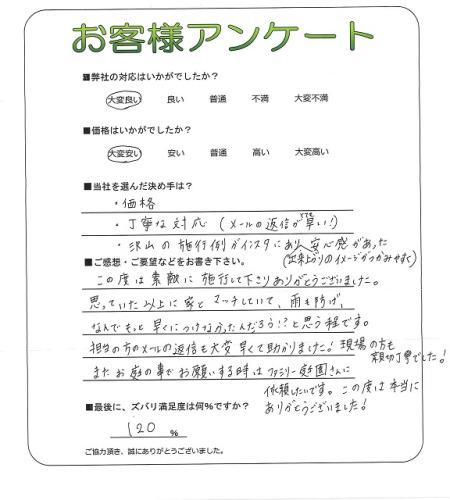 お客様アンケート
■弊社の対応はいかがでしたか?
大変良い 良い 普通 不満 大変不満
■価格はいかがでしたか?
大変安い 安い 普通 高い 大変高い
■当社を選んだ決め手は?
・価格
・丁寧な対応(メールの返信が早い!)
・沢山の施行例がインスタにあり安心感があった
(出来上がりのイメージがつかみやすく)
■ご感想・ご要望などをお書き下さい。
この度は素敵に施行して下さりありがとうございました。
思っていた以上に家とマッチしていて、雨も防げ、
なんでもっと早くにつけなかったんだろう!?と思う程です。
担当の方のメールの返信も大変早くて助かりました!現場の方も
親切丁寧でした!
またお庭の事でお願いする時はファミリー庭園さんに
依頼したいです。この度は本当に
ありがとうございました!
■最後に、ズバリ満足度は何%ですか?
120 %
ご協力頂き、誠にありがとうございました。